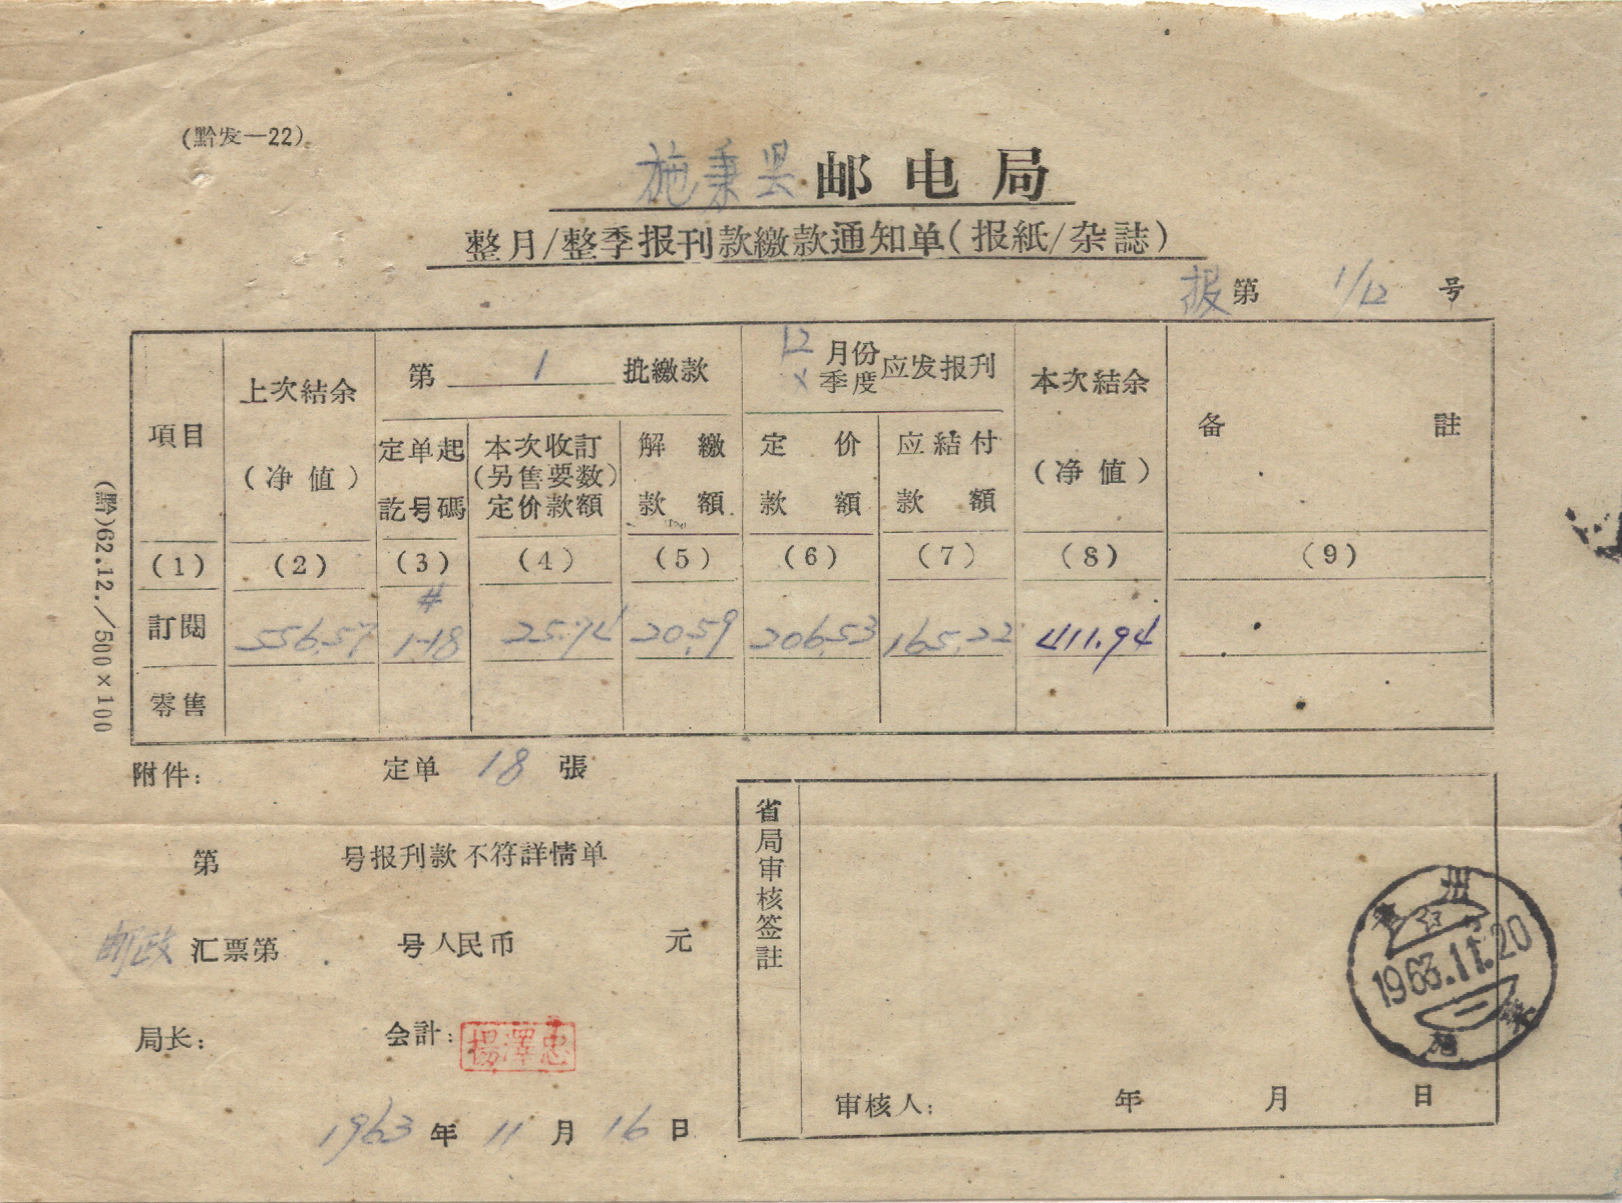 (黔发—22)
施秉县邮电局
整月/整季报刊款繳款通知单(报紙/杂誌)
报第 1/12 号
項目
上次結余
(净值)
第 1 批繳款
定单起
訖号碼
本次收訂
(另售要数)
定价款額
解繳
款額
12月份
×季度
应发报刊
定价
款額
应結付
款額
本次結余
(净值)
备註
(1) (2) (3) (4) (5) (6) (7) (8) (9)
訂閱 556.57 #1-18 25.74 20.59 206.53 165.22 411.94
零售
(黔)62.12./500×100
附件: 定单 18 張
第 号报刊款不符詳情单
邮政汇票第 号人民币 元
局长: 会計: 楊澤忠
1963年11月16日
省局审核签註
审核人: 年 月 日
贵州
1963.11.20
施秉